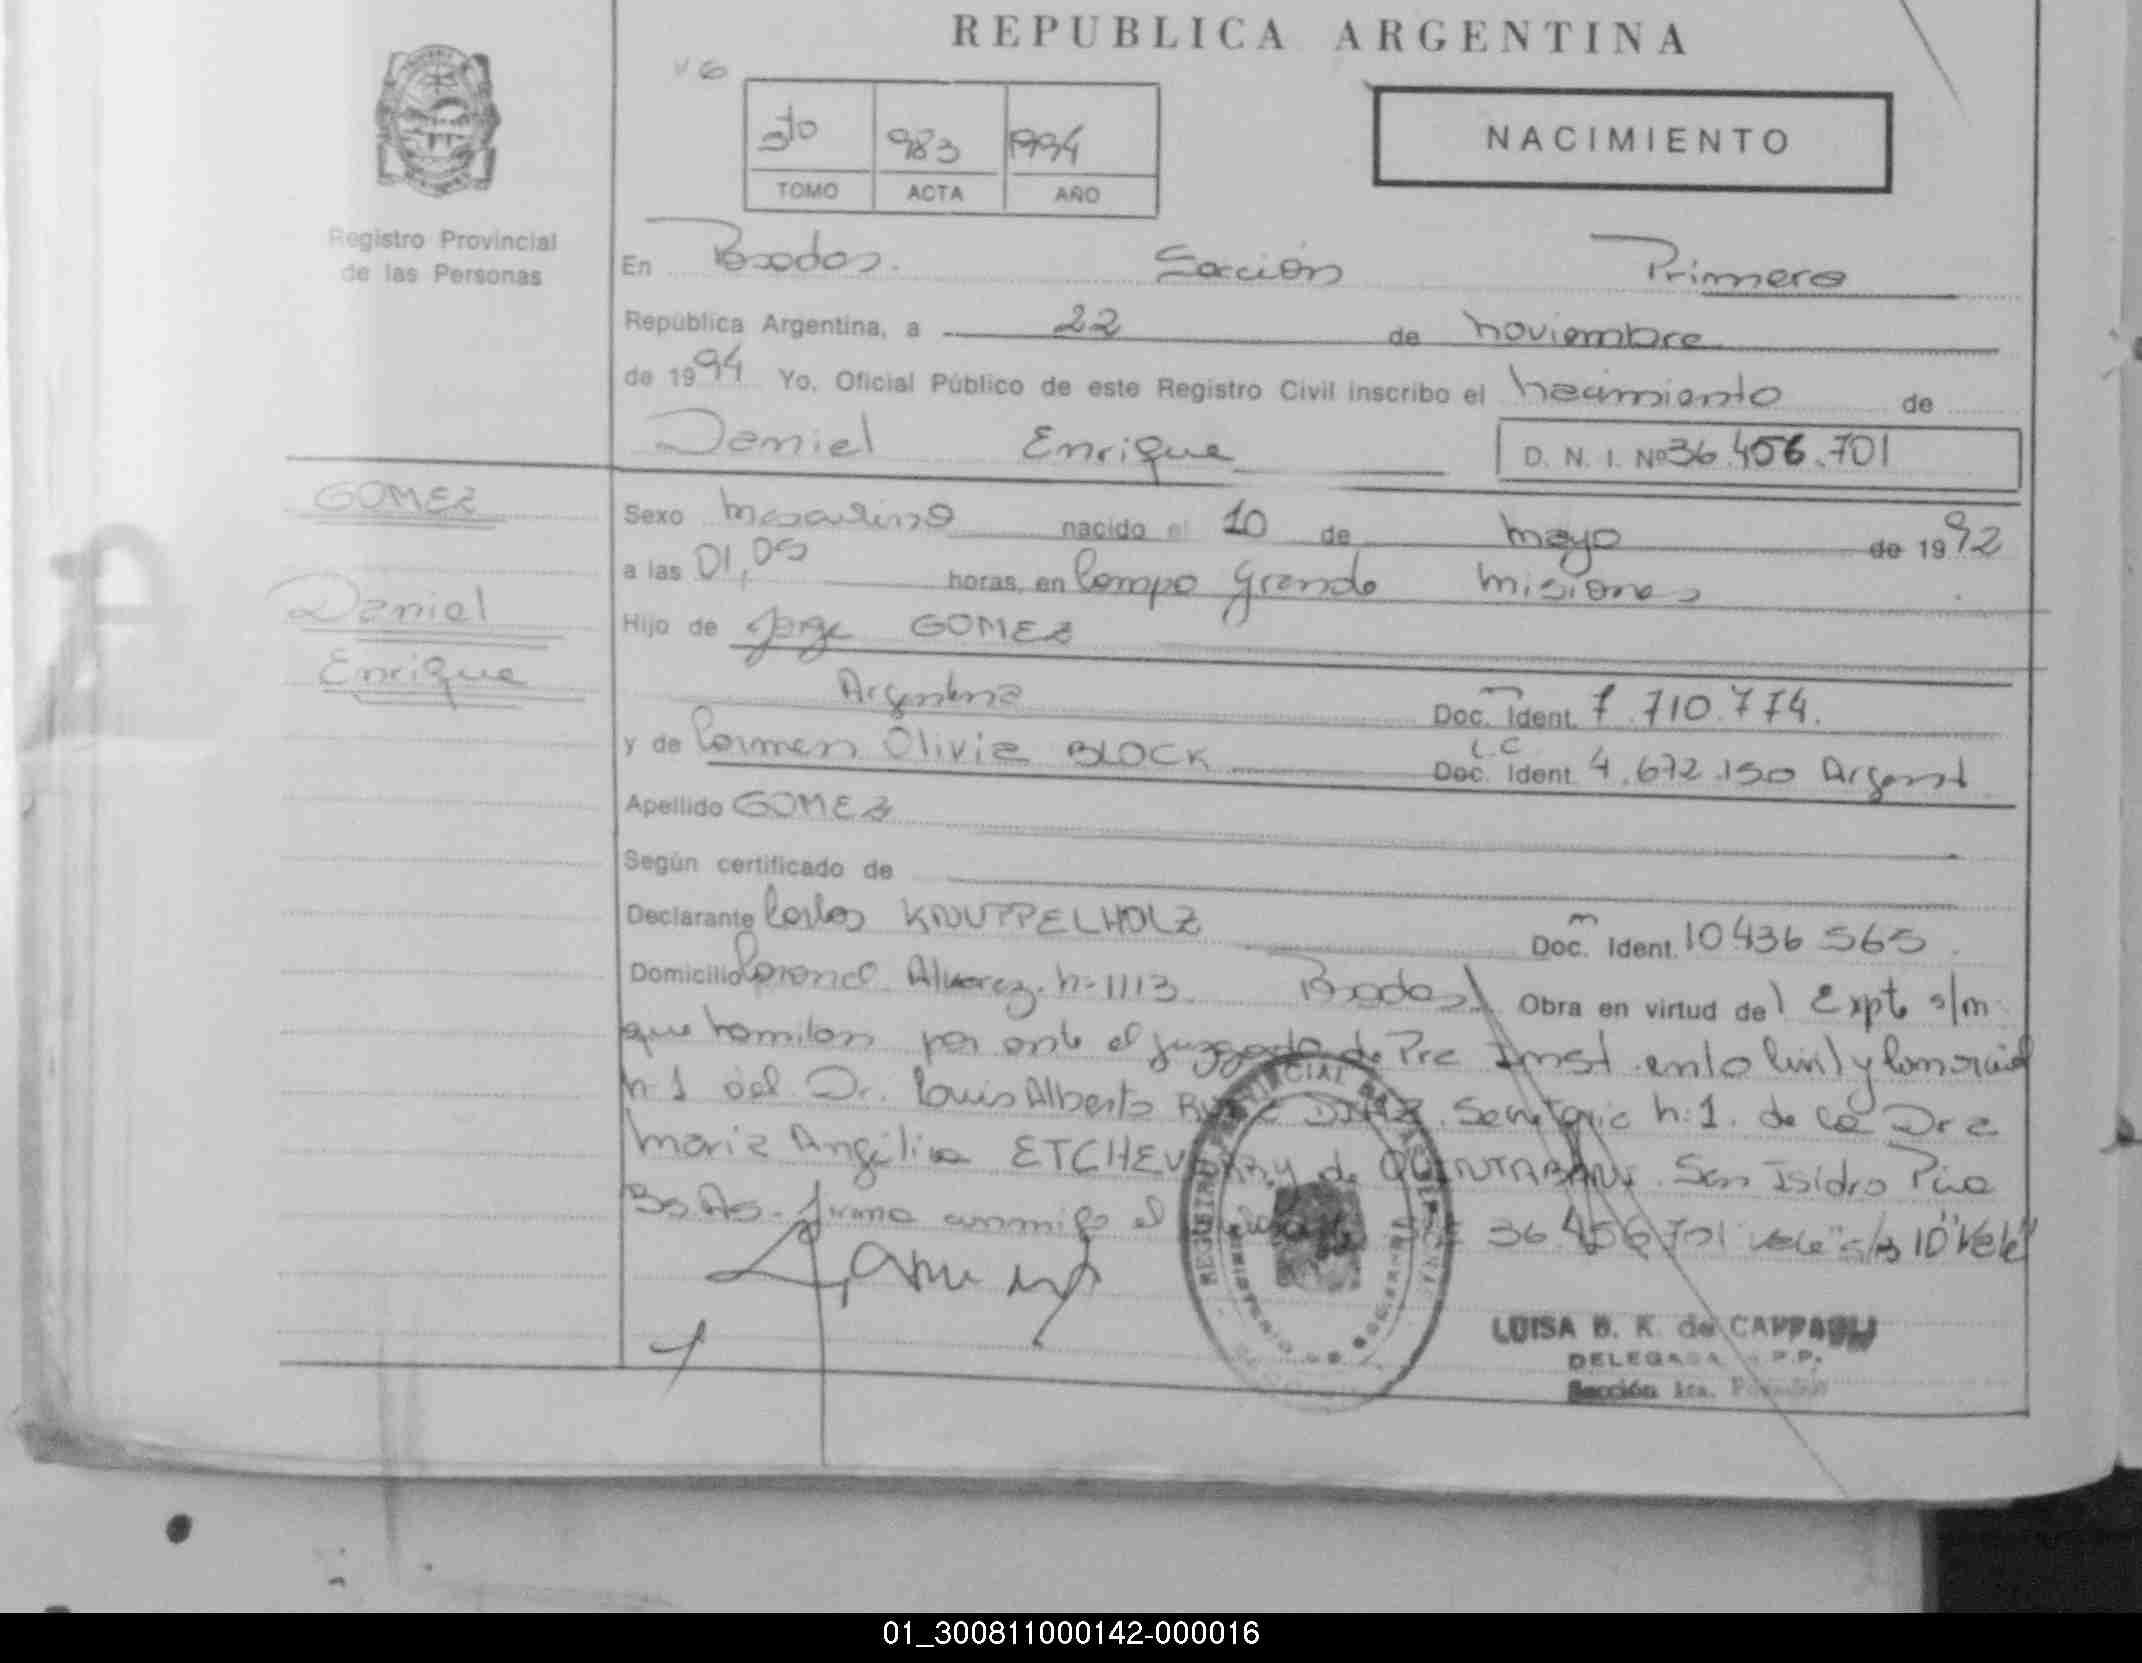 REPUBLICA ARGENTINA
V6
5to 983 1994
TOMO ACTA AÑO
NACIMIENTO
Registro Provincial
de las Personas
En Posadas. Sección Primera
República Argentina, a 22 de noviembre
de 1994 Yo, Oficial Público de este Registro Civil inscribo el nacimiento de
Daniel Enrique D. N. I. Nº 36.456.701
GOMEZ
Daniel
Enrique
Sexo masculino nacido el 10 de mayo de 1992
a las 01,05 horas, en Campo Grande Misiones
Hijo de Jorge GOMEZ
Argentina Doc. Ident. 7.710.774.
y de Carmen Olivia BLOCK L.C Doc. Ident. 4.672.150 Argent
Apellido GOMEZ
Según certificado de
Declarante Carlos KNUPPELHOLZ m Doc. Ident. 10436565.
Domicilio Coronel Alvarez n-1113. Posadas Obra en virtud del Expte s/n
que tramitan por ante el juzgado de Pra Inst en lo Civil y Comercial
n-1 del Dr. Luis Alberto DIAZ. Secretaria n:1. de la Dra
Maria Angélica ETCHEVERRY de San Isidro Pcia
Bs As. firma conmigo el 36.456.701 vale s/r 10 Vale
REGISTRO PROVINCIAL DE LAS PERSONAS
MINISTERIO DE GOBIERNO
LUISA B. K. de
DELEGADA R.P.P.
Sección 1ra. Posadas
01_300811000142-000016